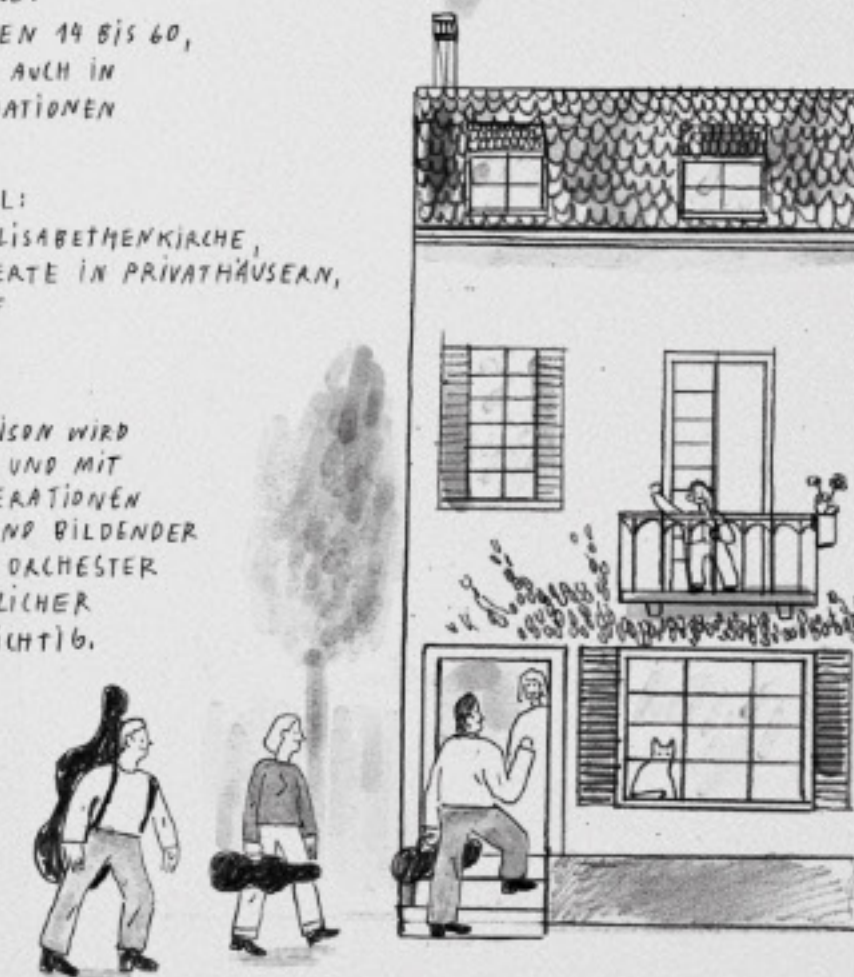 EN 14 BIS 60,
AUCH IN
ATIONEN
L:
LISABETHENKIRCHE,
ERTE IN PRIVATHÄUSERN,
ISON WIRD
UND MIT
ERATIONEN
ND BILDENDER
ORCHESTER
LICHER
ICHTIG.